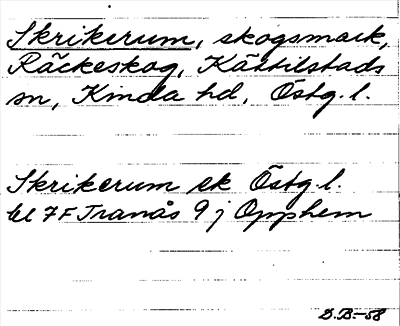 Skrikerum, skogsmark,
Räckeskog, Kättilstads
sn, Kinda hd, Östg.l.
Skrikerum ek Östg.l.
bl 7F Tranås 9 j Opphem
B.B.-58